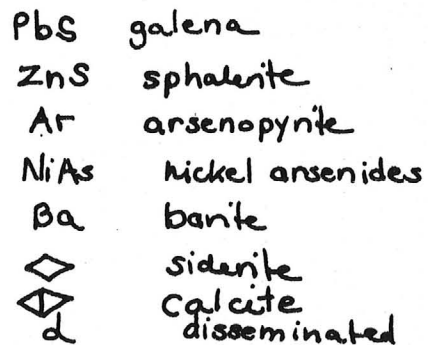 PbS galena
ZnS sphalerite
Ar arsenopyrite
NiAs nickel arsenides
Ba barite
siderite
calcite
d disseminated